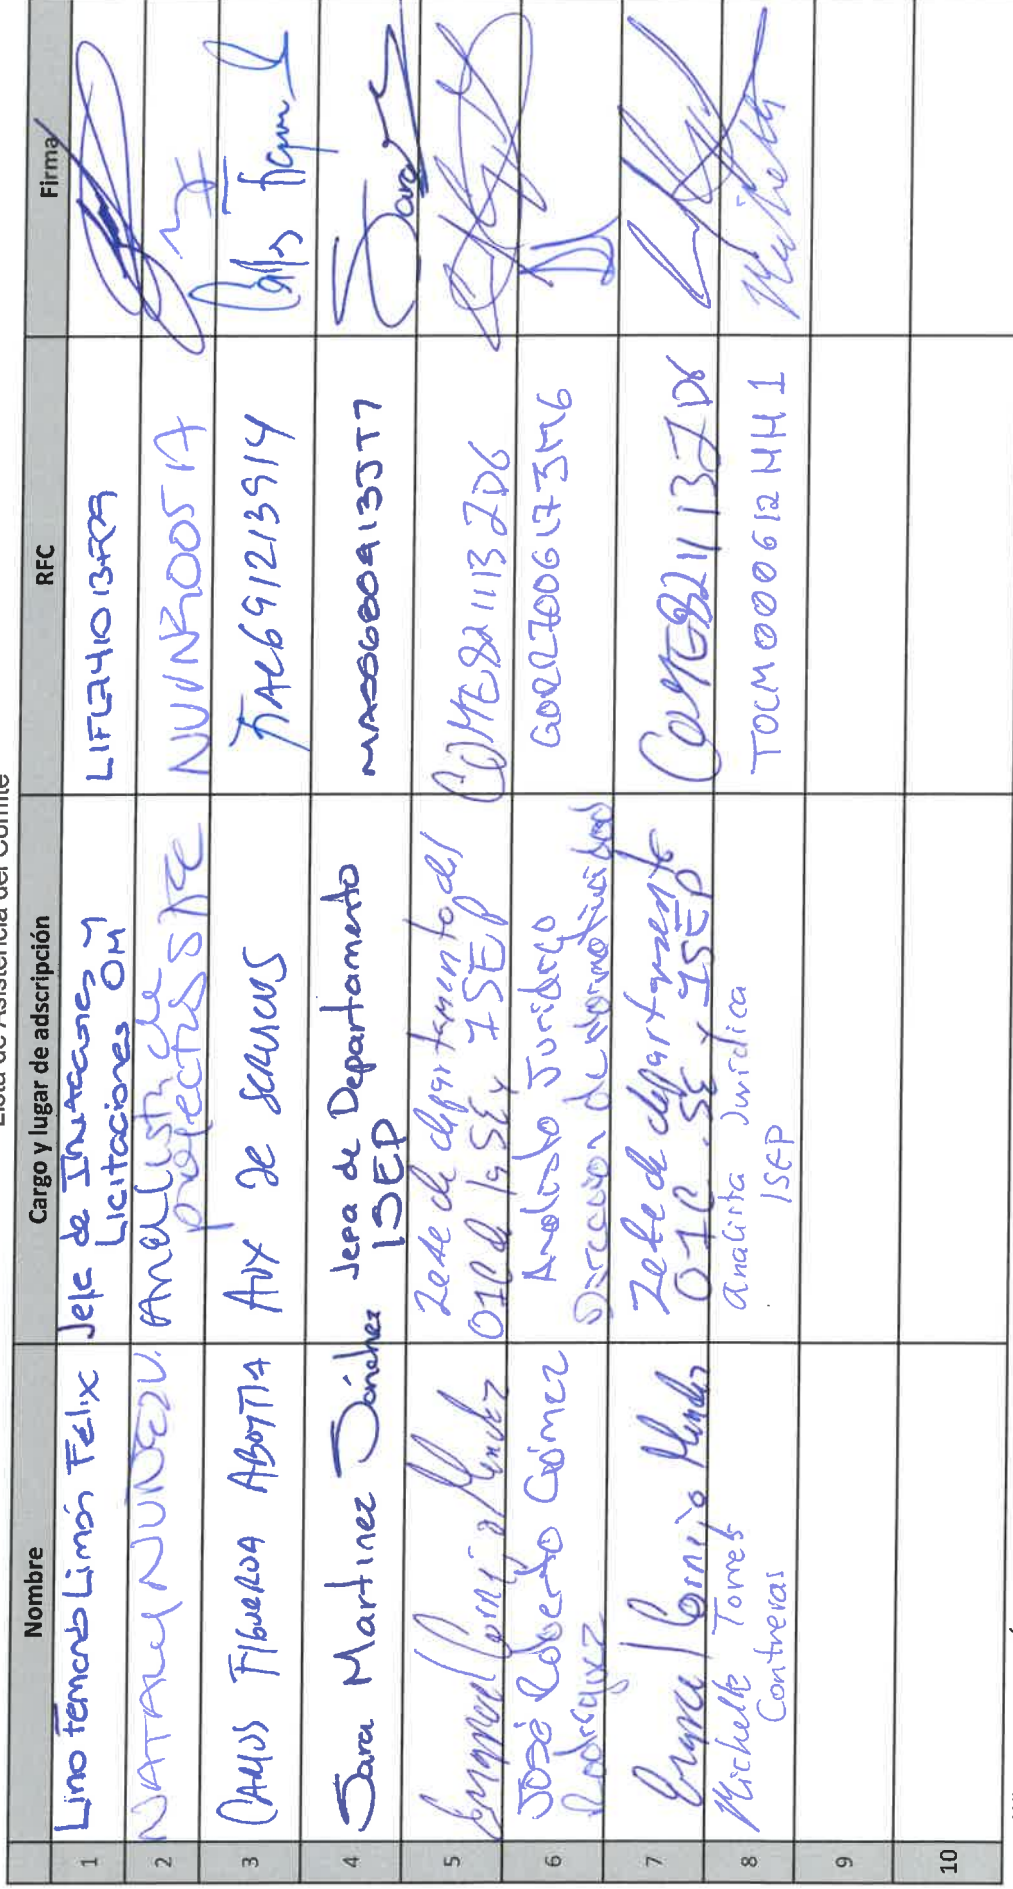 Lista de Asistencia del Comité
Nombre Cargo y lugar de adscripción RFC Firma
1 Lino Temeno Limón Felix Jefe de Invitaciones y
Licitaciones OM LIFL741013
2 NATALY NUÑEZ V. Analista de
proyectos
3 CARLOS FIGUEROA ABOYTIA AUX DE SERVICIOS FIAC691213914 Carlos Figueroa
4 Sara Martinez Sánchez Jefa de Departamento
ISEP MASS680913JT7 Sara
5 Emanuel Cornejo Mendez Jefe de departamento del
OIC de la SE y ISEP COME821113ZD6
6 José Roberto Gómez
Rodríguez Analista Jurídico
Dirección de Normatividad GORR7006173M6
7 Emanuel Cornejo Mendez Jefe de departamento
OIC SE y ISEP COME821113ZD6
8 Michelle Torres
Contreras analista Jurídica
ISEP TOCM000612MH1 Michelle
9
10